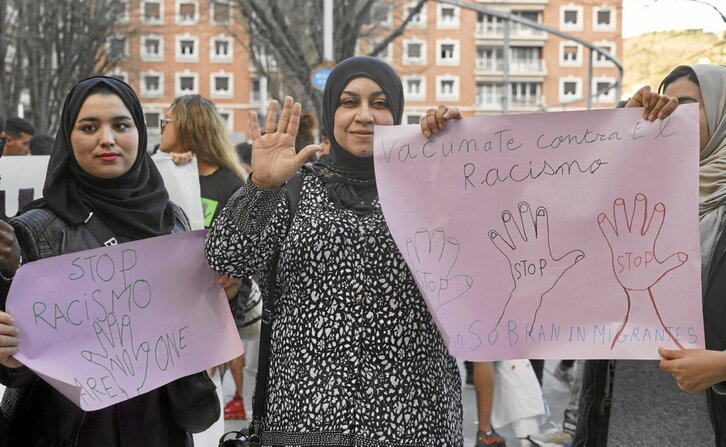 STOP
RACISMO
ARE ONE
Vacunate contra El
Racismo
STOP
STOP
STOP
n SOBRAN INMIGRANTES